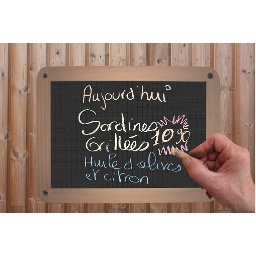 Aujourd'hui
Sardines
Grillées 10%
Huile d'olives
et citron